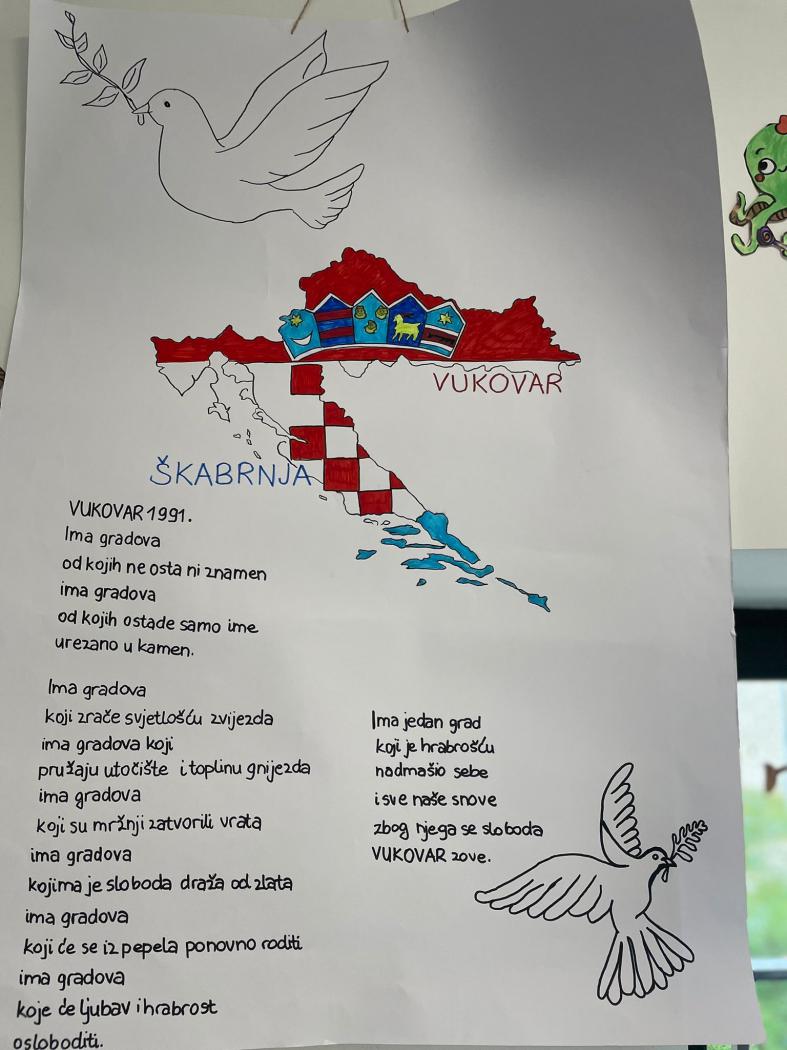 VUKOVAR
ŠKABRNJA
VUKOVAR 1991.
Ima gradova
od kojih ne osta ni znamen
ima gradova
od kojih ostade samo ime
urezano u kamen.
Ima gradova
koji zrače svjetlošću zvijezda
ima gradova koji
pružaju utočište i toplinu gnijezda
ima gradova
koji su mržnji zatvorili vrata
ima gradova
kojima je sloboda draža od zlata
ima gradova
koji će se iz pepela ponovno roditi
ima gradova
koje će ljubav i hrabrost
osloboditi.
Ima jedan grad
koji je hrabrošću
nadmašio sebe
i sve naše snove
zbog njega se sloboda
VUKOVAR zove.